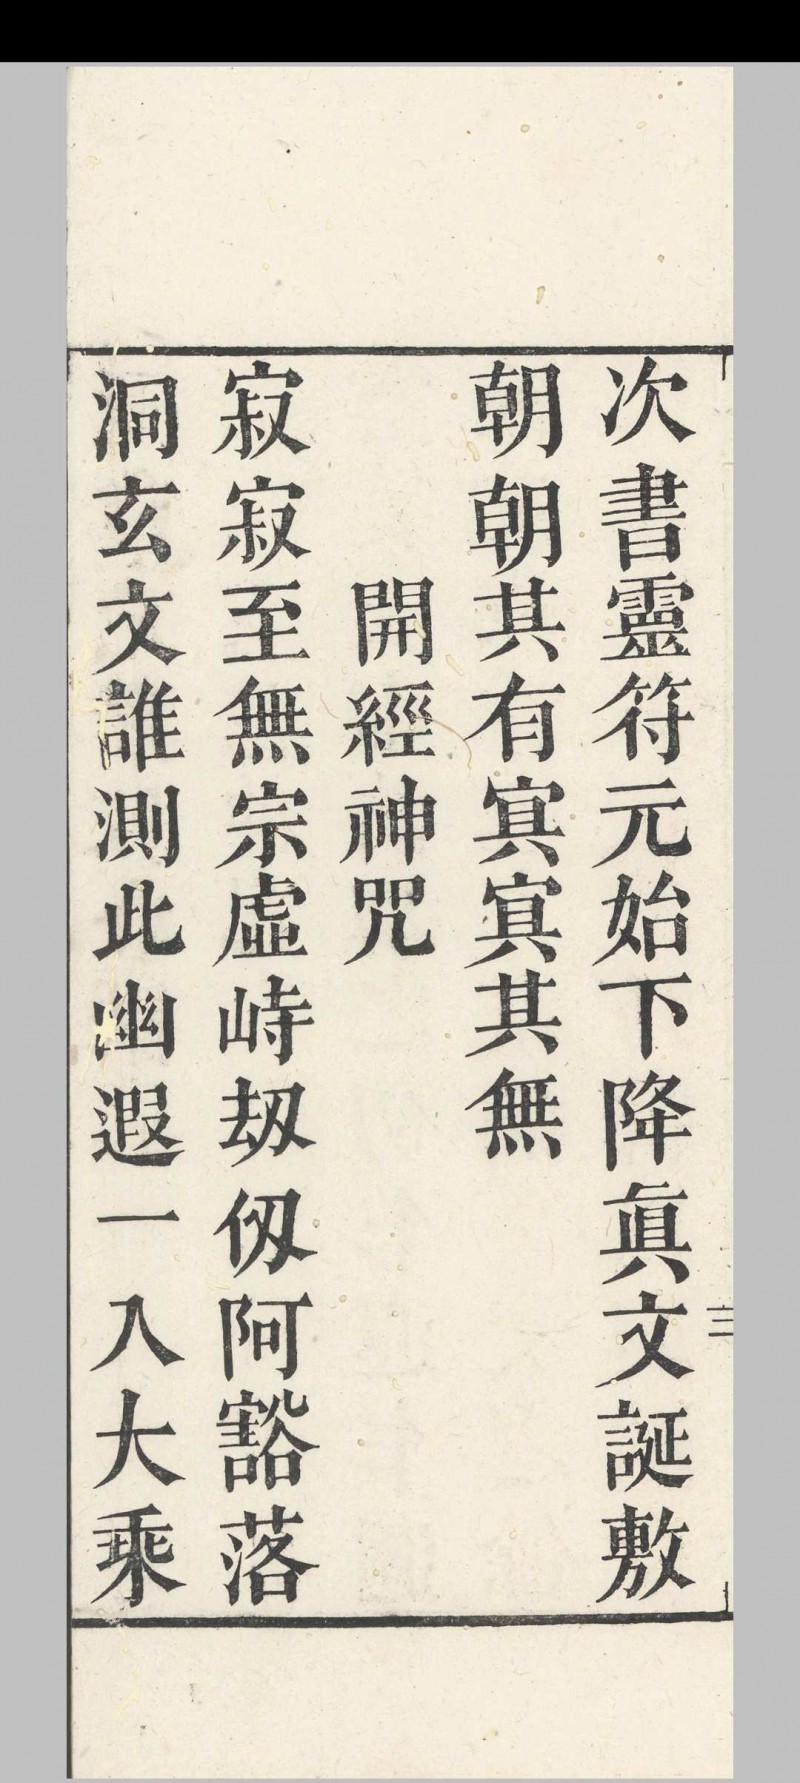 次書靈符元始下降眞文誕敷
朝朝其有冥冥其無
開經神咒
寂寂至無宗虛峙劫仭阿豁落
洞玄文誰測此幽遐一入大乘
三